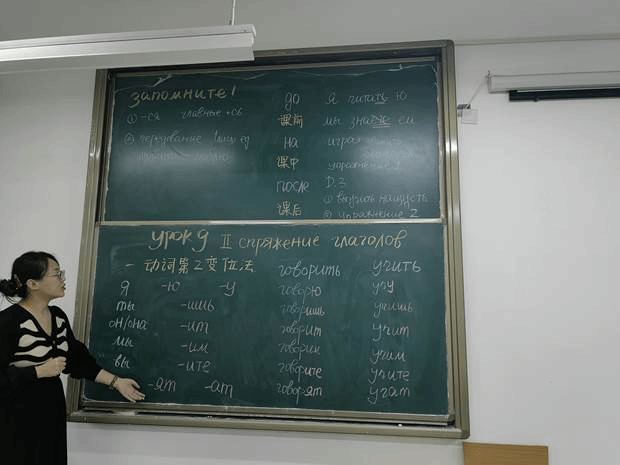 запомните!
① -ся главные +сь
② чередование
до
课前
на
课中
после
课后
я читать ю
мы знаю ем
упражнение 1
D.3
① выучить наизусть
② упражнение 2
урок 9 II спряжение глаголов
一 动词第2变位法 говорить учить
я -ю -у говорю учу
ты -ишь говоришь учишь
он/она -ит говорит учит
мы -им говорим учим
вы -ите говорите учите
-ят -ат говорят учат